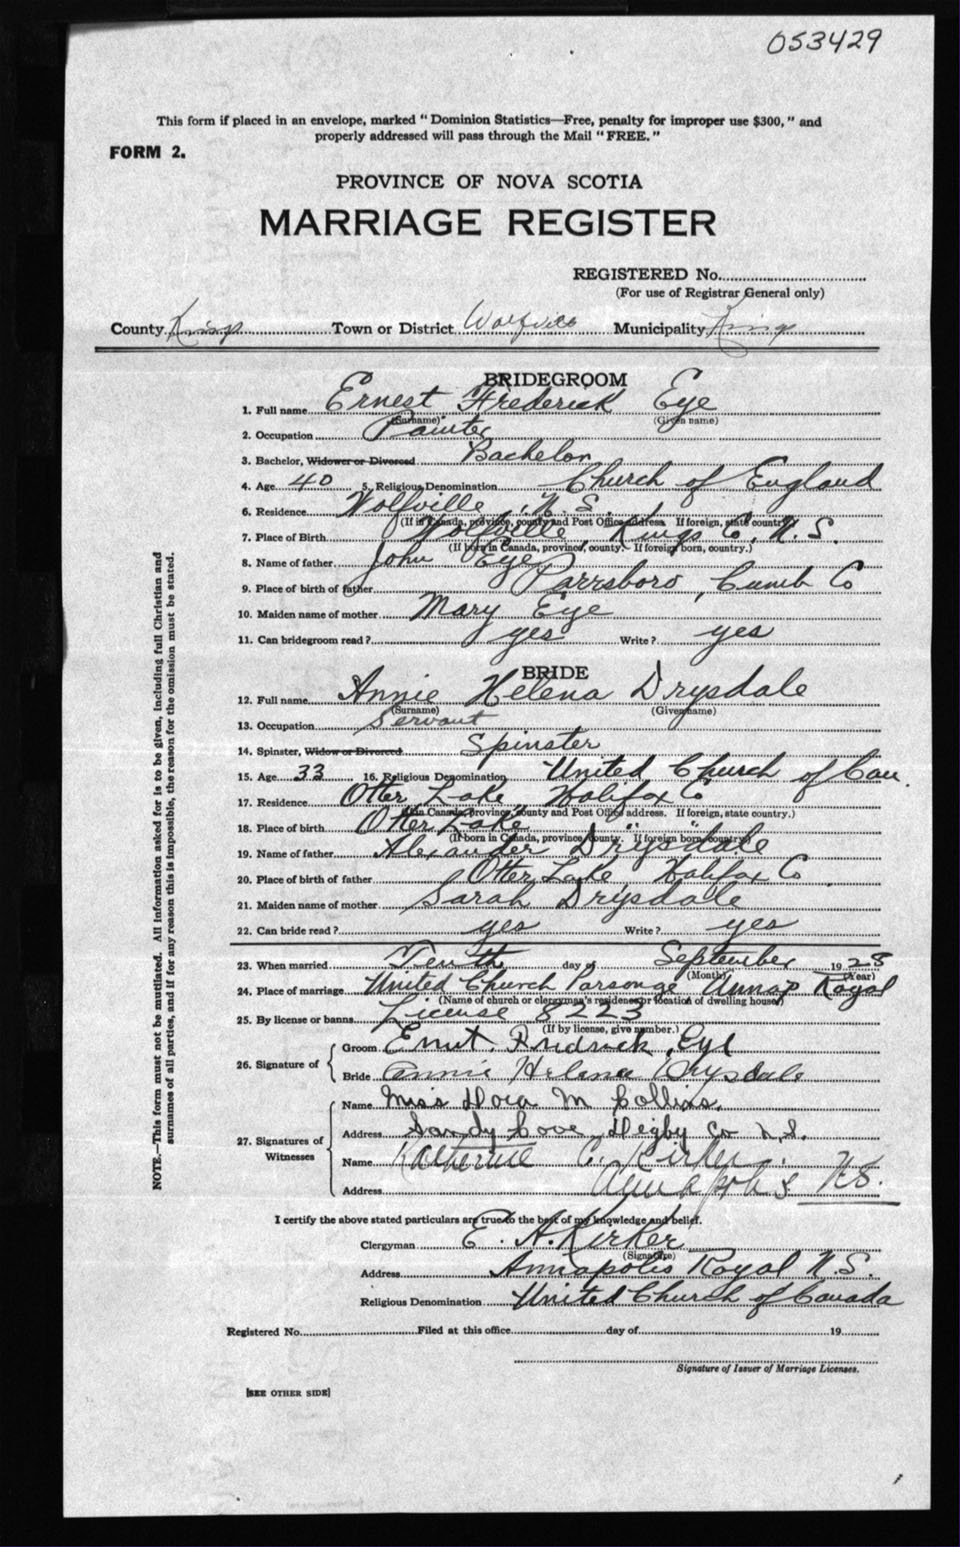 053429
This form if placed in an envelope, marked " Dominion Statistics—Free, penalty for improper use $300, " and
properly addressed will pass through the Mail "FREE."
FORM 2.
PROVINCE OF NOVA SCOTIA
MARRIAGE REGISTER
REGISTERED No.
(For use of Registrar General only)
County Kings Town or District Wolfville Municipality Kings
BRIDEGROOM
1. Full name Ernest Frederick Eye
(Surname) (Given name)
2. Occupation Painter
3. Bachelor, Widower or Divorced Bachelor
4. Age 40 5. Religious Denomination Church of England
6. Residence Wolfville, N.S.
(If in Canada, province, county and Post Office address. If foreign, state country)
7. Place of Birth Wolfville, Kings Co, N.S.
(If born in Canada, province, county. If foreign born, country.)
8. Name of father John Eye
9. Place of birth of father Parrsboro, Cumb Co
10. Maiden name of mother Mary Eye
11. Can bridegroom read? yes Write? yes
BRIDE
12. Full name Annie Helena Drysdale
(Surname) (Given name)
13. Occupation Servant
14. Spinster, Widow or Divorced Spinster
15. Age 33 16. Religious Denomination United Church of Can
17. Residence Otter Lake Halifax Co
(If in Canada, province, county and Post Office address. If foreign, state country.)
18. Place of birth Otter Lake " "
(If born in Canada, province, county. If foreign born, country)
19. Name of father Alexander Drysdale
20. Place of birth of father Otter Lake, Halifax Co
21. Maiden name of mother Sarah Drysdale
22. Can bride read? yes Write? yes
23. When married Tenth day of September 1928
(Month) (Year)
24. Place of marriage United Church Parsonge Annap Royal
(Name of church or clergyman's residence or location of dwelling house)
25. By license or banns License 8223
(If by license, give number.)
26. Signature of
Groom Ernest Fredrick Eye
Bride Annie Helena Drysdale
27. Signatures of Witnesses
Name Miss Dora M Collins,
Address Sandy Cove, Digby Co N.S.
Name Katherine C. Kirker
Address Annapolis N.S.
I certify the above stated particulars are true to the best of my knowledge and belief.
Clergyman E. A. Kirker
(Signature)
Address Annapolis Royal N.S.
Religious Denomination United Church of Canada
Registered No. Filed at this office day of 19
Signature of Issuer of Marriage Licenses.
[SEE OTHER SIDE]
NOTE.—This form must not be mutilated. All information asked for is to be given, including full Christian and
surnames of all parties, and if for any reason this is impossible, the reason for the omission must be stated.